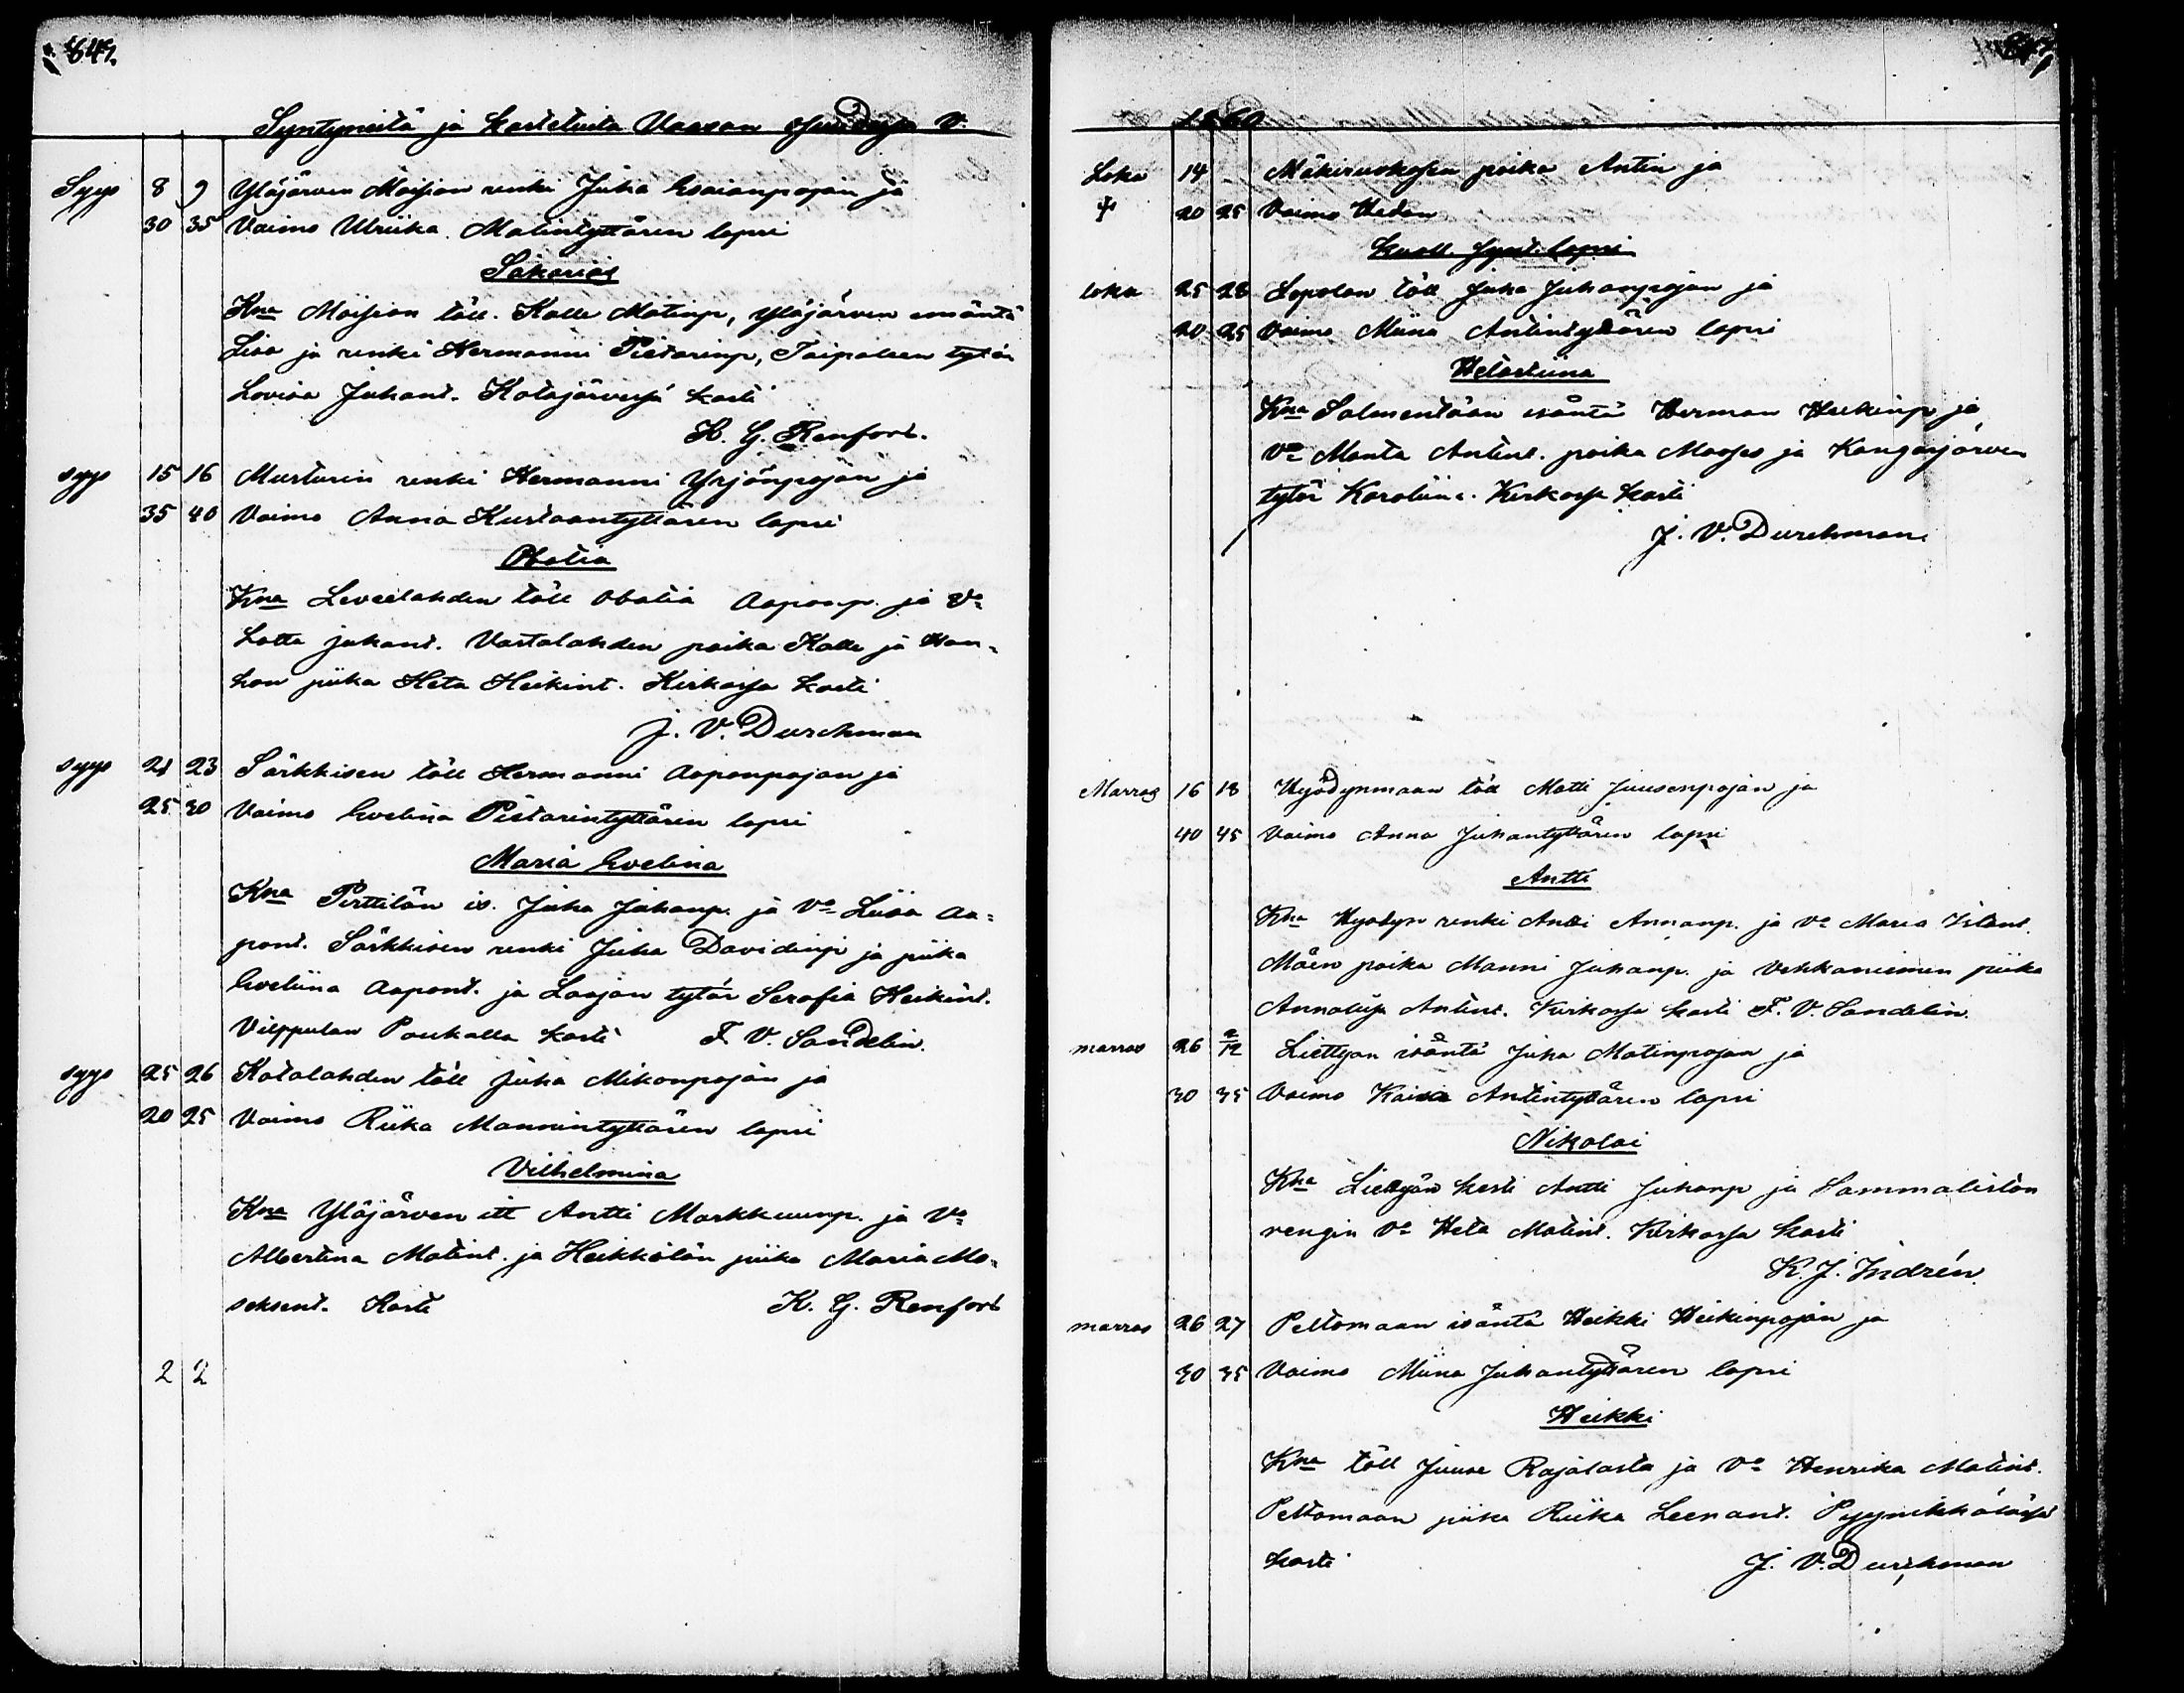 849.
Syntyneitä ja kastetuita Vaasan V.
Syys 8 9 Yläjärven Moision renki Juha Esaianpojan ja
30 35 Vaimo Ulriika Matintyttären lapsi
Sakarias
Kna Moision töll. Kalle Matinp, Yläjärven emäntä
Lisa ja renki Hermanni Pietarinp, Taipaleen tytär
Lovisa Juhant. Katajärvessä kasti
K. G. Renfors.
syys 15 16 Musturin renki Hermanni Yrjönpojan ja
35 40 Vaimo Anna Kustaantyttären lapsi
Obatia
Kna Leveelahden töll Obatia Aaponp. ja Vo
Lotta juhant. Vastalahden poika Kalle ja Han-
hon piika Heta Heikint. Kirkossa kasti
J. V. Durchman
syys 21 23 Särkkisen töll Hermanni Aaponpojan ja
25 30 Vaimo Evelina Pietarintyttären lapsi
Maria Evelina
Kna Perttilän is. Juha Juhanp. ja Vo Liisa Aa-
pont. Särkkisen renki Juha Davidinp ja piika
Eveliina Aapont. ja Laajan tytär Serafia Heikint.
Vilppulan Poukalla kasti F. V. Sandelin.
syys 25 26 Katalahden töll Juha Mikonpojan ja
20 25 Vaimo Riika Mannintyttären lapsi
Vilhelmina
Kna Yläjärven itt Antti Markkuunp. ja Vo
Albertina Matint. ja Heikkilän piika Maria Mo-
seksent. Kasti K. G. Renfors
2 2
1860
Loka 14 Mäkiruokosen poika Antin ja
+ 20 25 Vaimo Hedan
Kuoll. synt. lapsi
loka 25 28 Lopolan töll Juha Juhanpojan ja
20 25 Vaimo Miina Antintyttären lapsi
Hetastiina
Kna Salmentään isäntä Herman Heikinp ja
Vo Manta Antint. poika Mooses ja Kangasjärven
tytär Karoliina. Kirkossa kasti
J. V. Durchman.
Marras 16 18 Hyödynmaan töll Matti Juusenpojan ja
40 45 Vaimo Anna Juhantyttären lapsi
Antti
Kna Hyödyn renki Antti Annanp. ja Vo Maria
Mäen poika Manni Juhanp. ja Vehkaniemen piika
Annaliisa Antint. Kirkossa kasti F. V. Sandelin.
marras 26 2/12 Liettyan isäntä Juha Matinpojan ja
30 35 Vaimo Kaisa Antintyttären lapsi
Nikolai
Kna Liettyän kesti Antti Juhanp ja Sammaliston
rengin Vo Heta Matint. Kirkossa kasti
K. J. Indrén.
marras 26 27 Peltomaan isäntä Heikki Heikinpojan ja
30 35 Vaimo Miina Juhantyttären lapsi
Heikki
Kna töll Juuse Rajalasta ja Vo Henrika Matint.
Peltomaan piika Riika Leenant. Pyynikkölässä
kasti J. V. Durchman